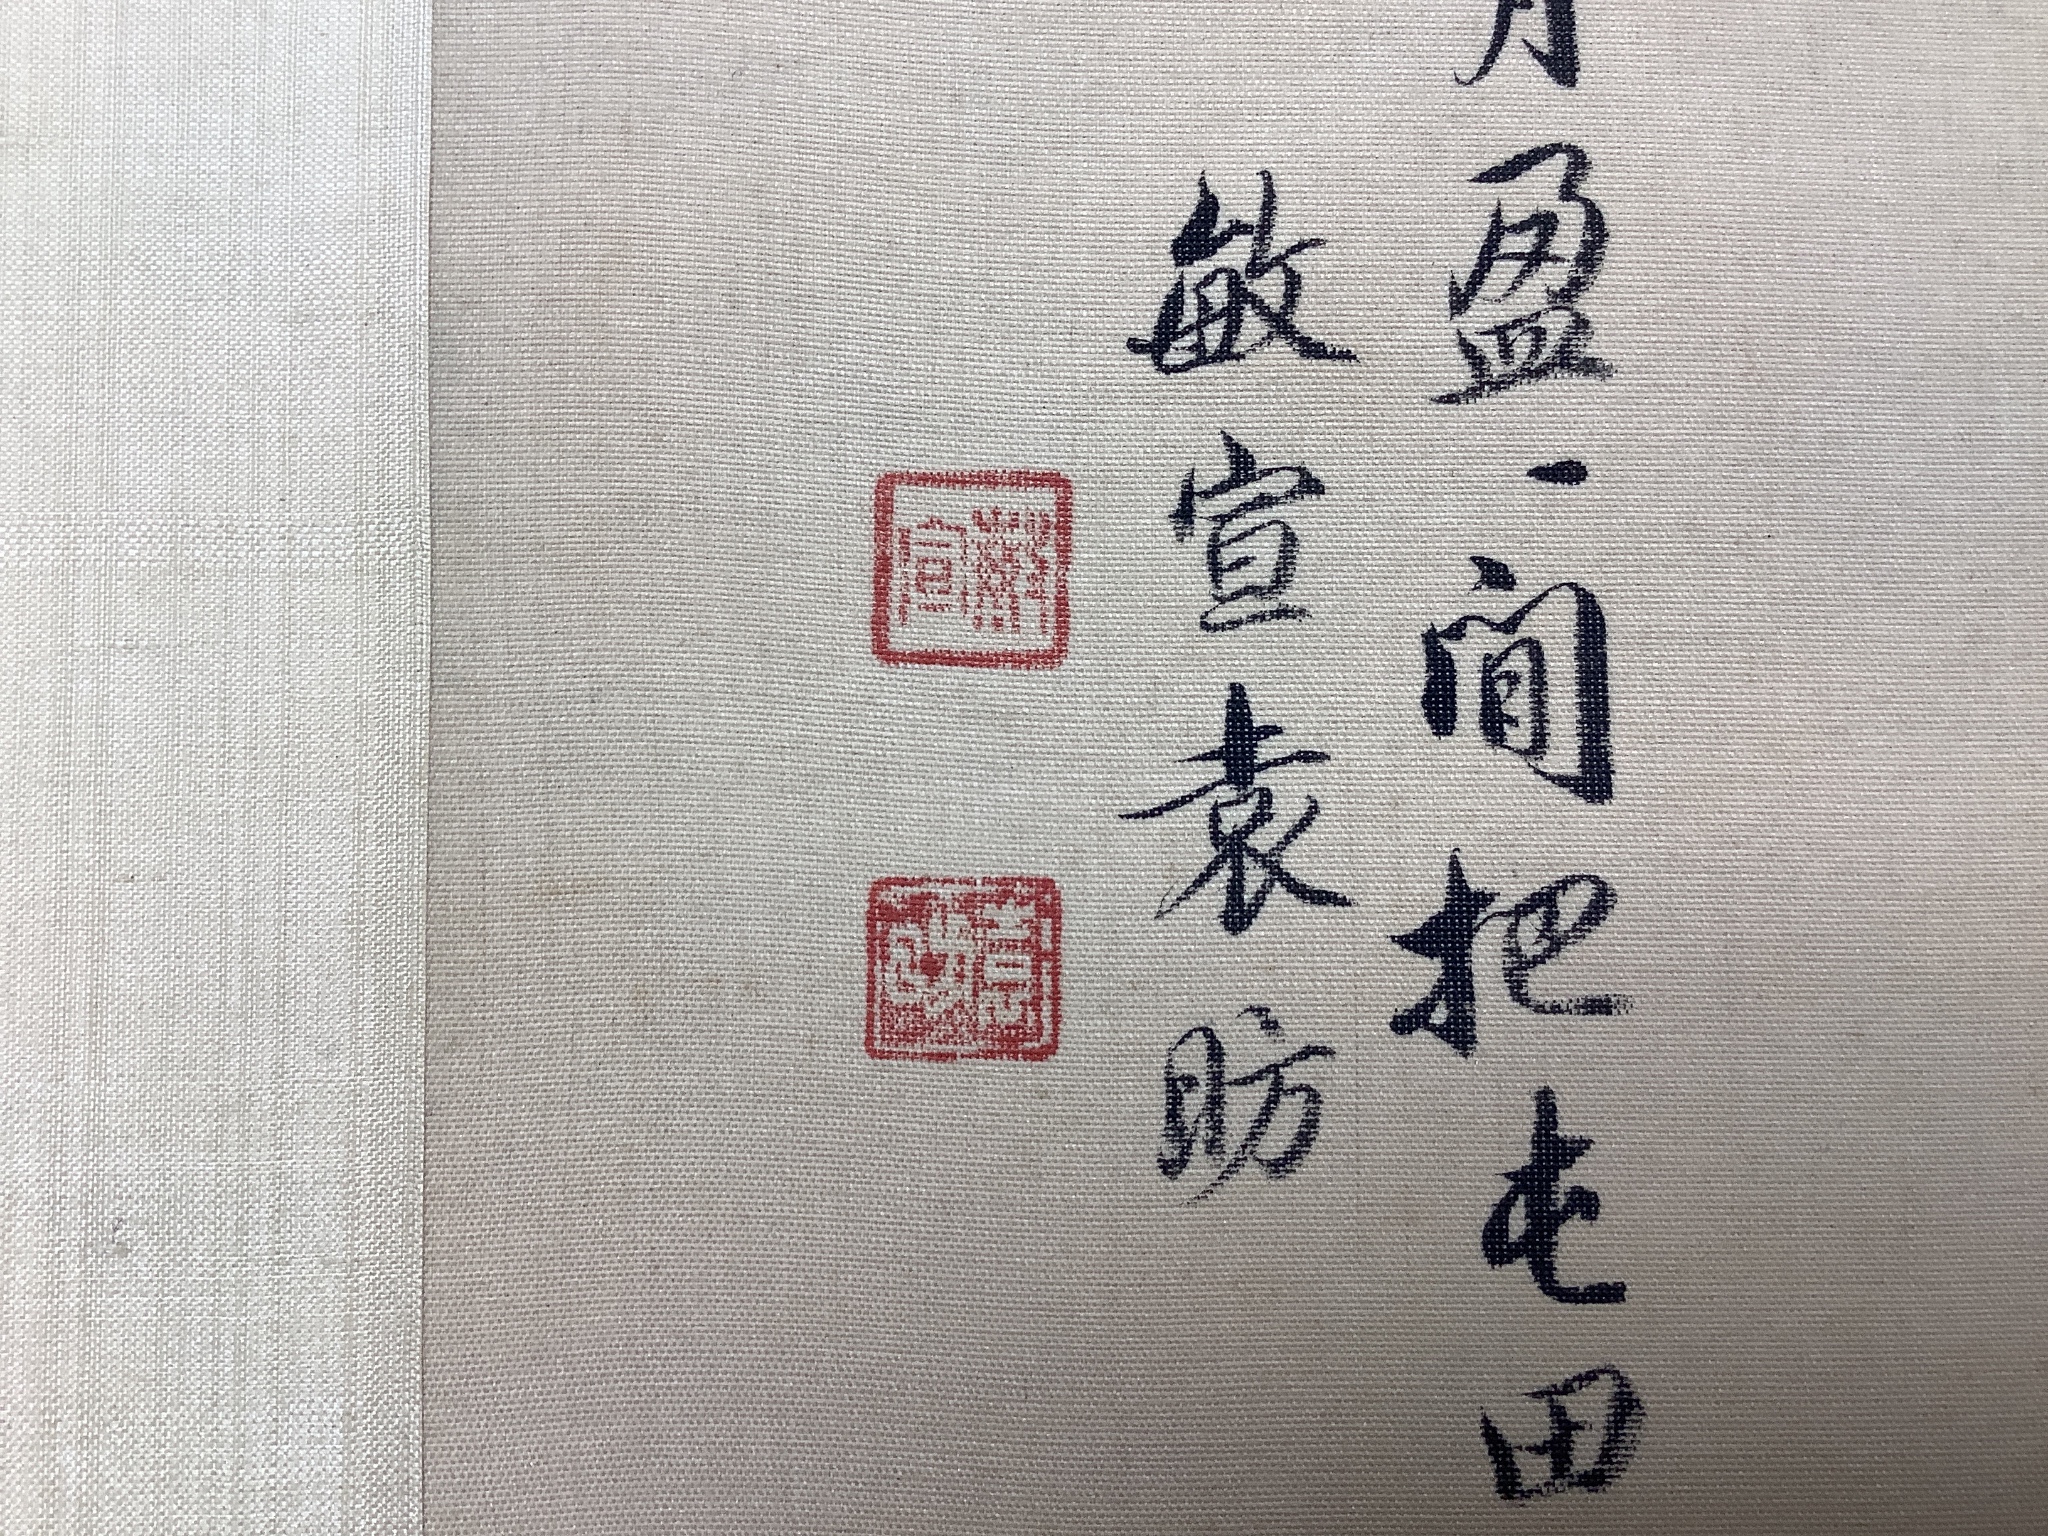 盈、间把屯田
敏宣袁昉